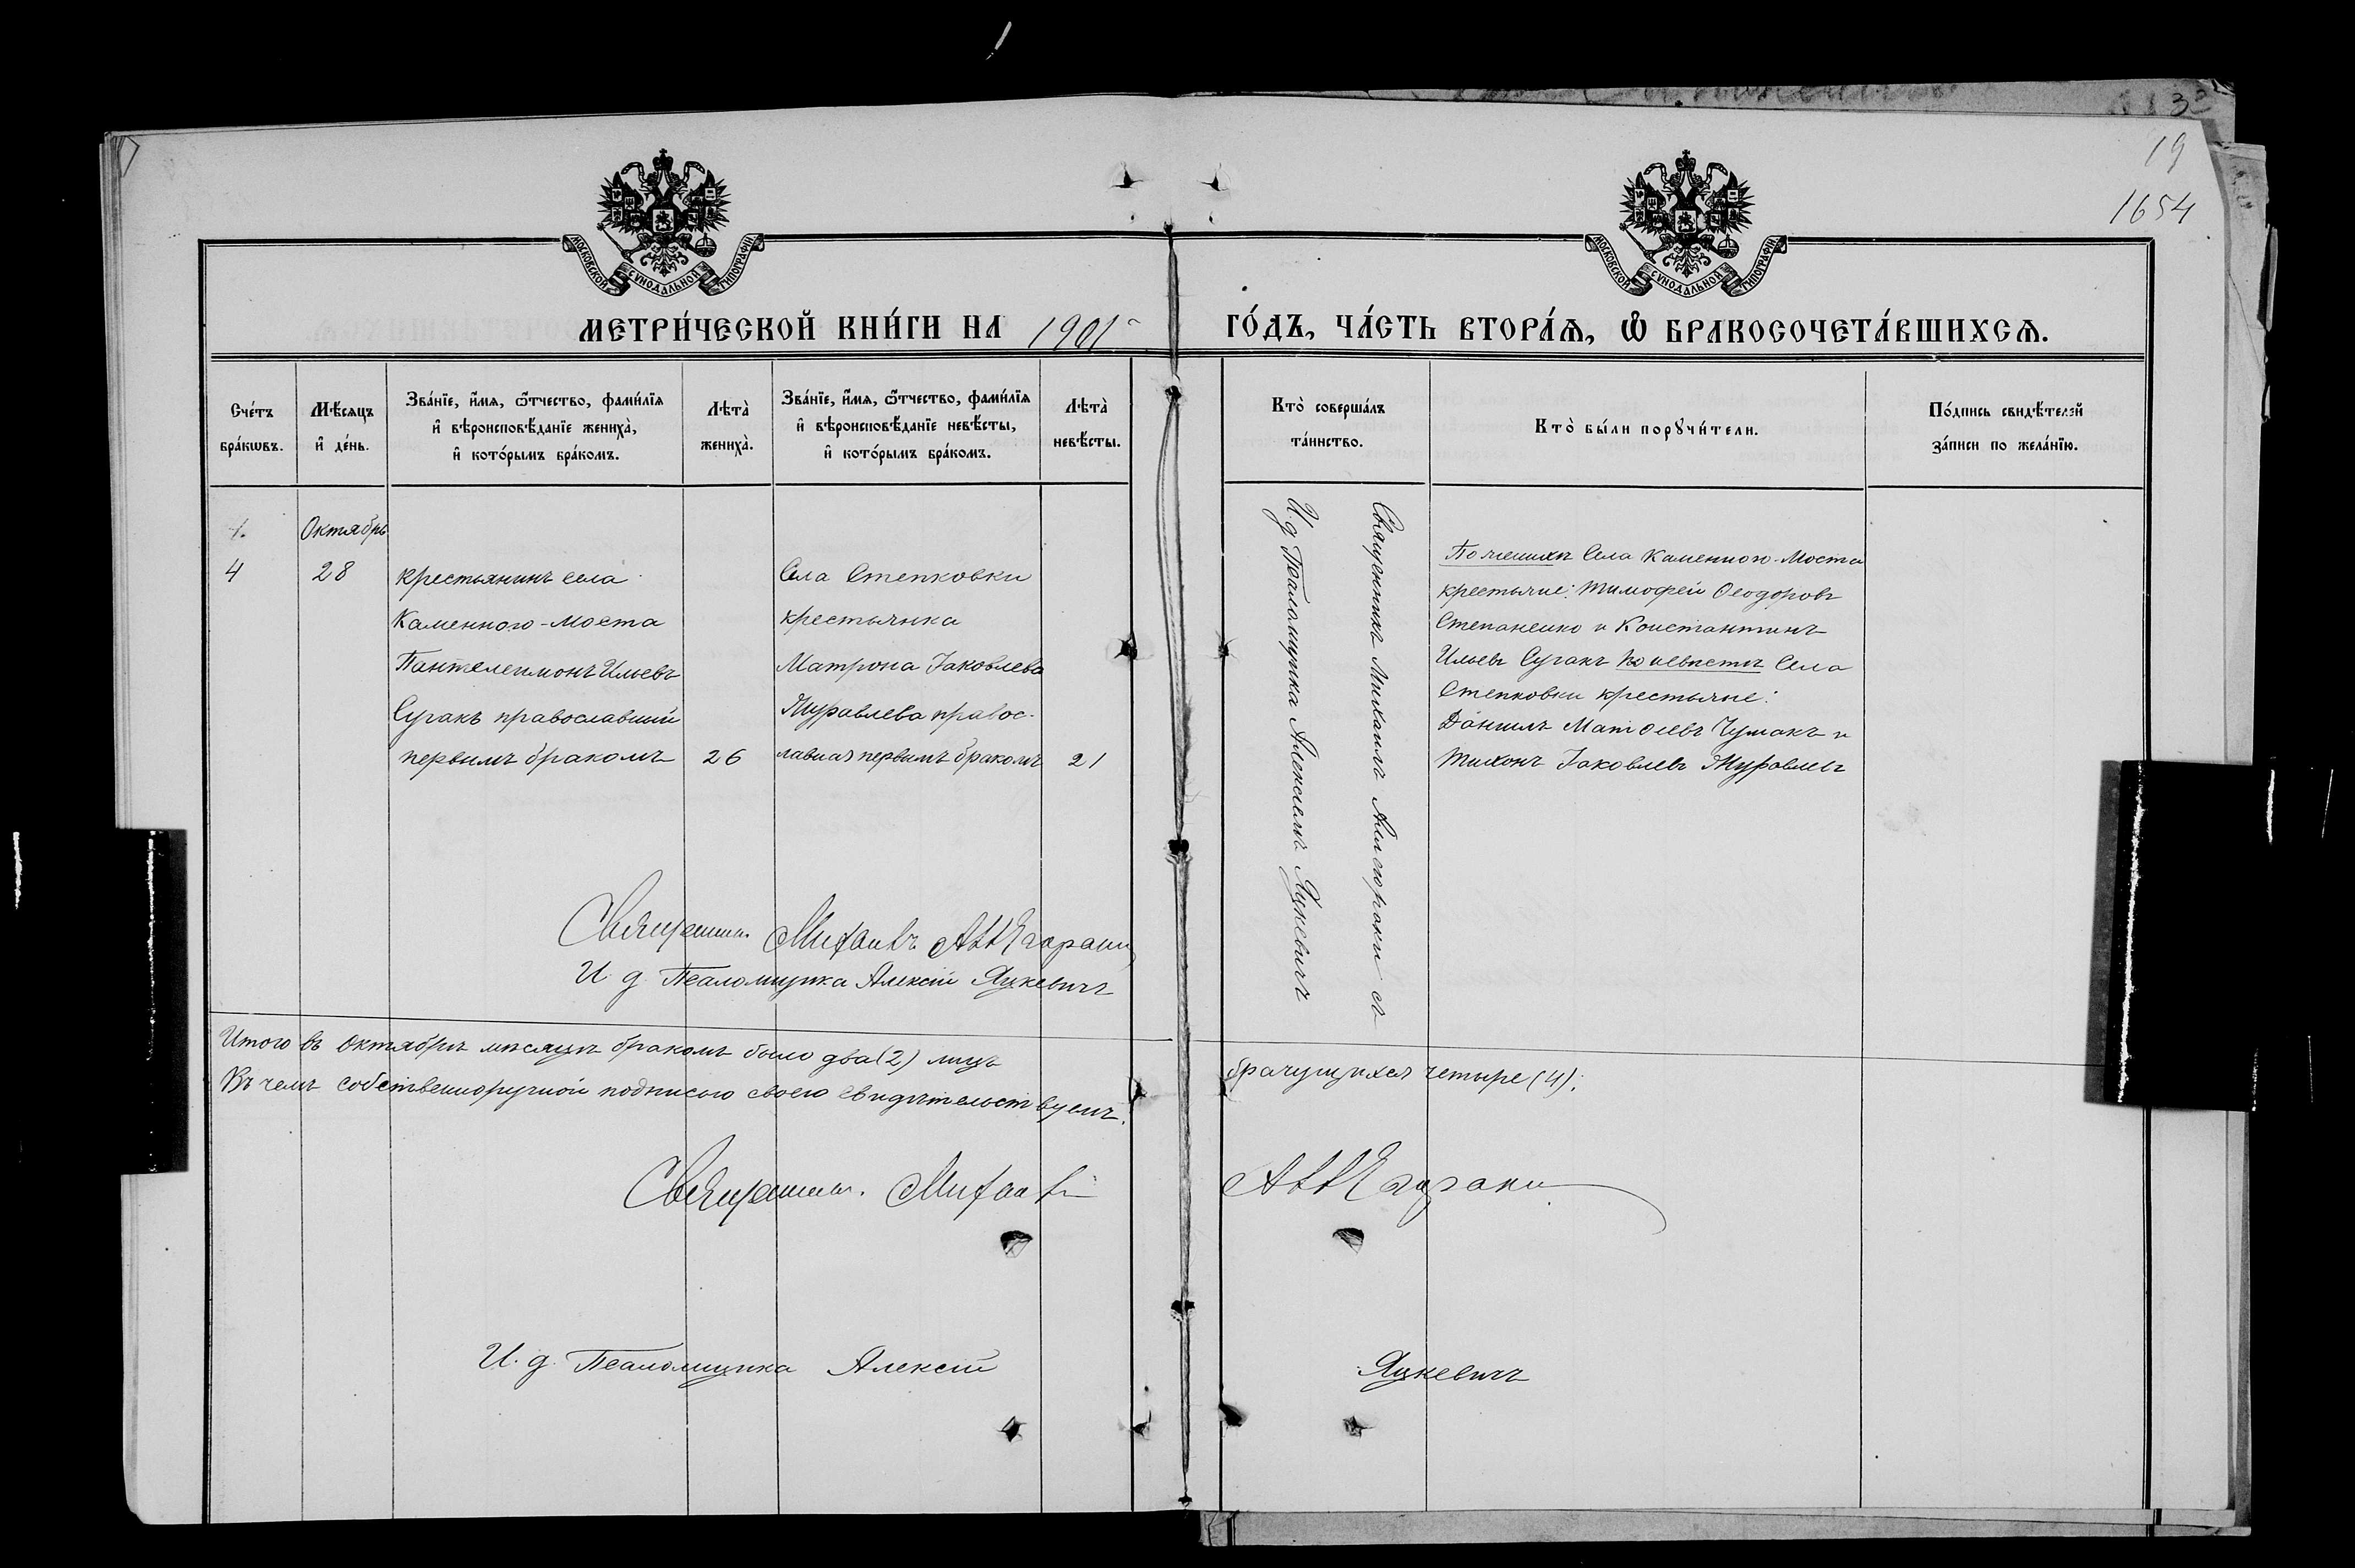 19
1654
МОСКОВСКОЙ СѴНОДАЛЬНОЙ ТИПОГРАФІИ
МОСКОВСКОЙ СѴНОДАЛЬНОЙ ТИПОГРАФІИ
МЕТРИ́ЧЕСКОЙ КНИ́ГИ НА 1901 ГО́ДЪ, ЧА́СТЬ ВТОРА́Ѧ, Ѡ҆ БРАКОСОЧЕТА́ВШИХСѦ.
Сче́тъ бра́кѡвъ.
Мѣ́сѧцъ и҆ де́нь.
Зва́нїе, и҆́мѧ, ѻ҆́тчество, фами́лїѧ
и҆ вѣроисповѣ́данїе женихà,
и҆ кото́рымъ бра́комъ.
Лѣтà женихà.
Зва́нїе, и҆́мѧ, ѻ҆́тчество, фами́лїѧ
и҆ вѣроисповѣ́данїе невѣ́сты,
и҆ кото́рымъ бра́комъ.
Лѣтà невѣ́сты.
Кто̀ соверша́лъ та́инство.
Кто̀ бы́ли порꙋчи́тели.
По́дпись свидѣ́телей за́писи по жела́нїю.
Октябрь
4
28
крестьянинъ села
Каменнаго-Моста
Пантелеимонъ Ильевъ
Сугакъ православный
первымъ бракомъ
26
Села Степковки
крестьянка
Матрона Іаковлева
Журавлева правос-
лавная первымъ бракомъ
21
Священникъ Михаилъ съ
И. д. Псаломщика Алексѣемъ Яцкевичъ
По женихѣ Села Каменного-Моста
крестьяне: Тимофей Ѳеодоровъ
Степаненко и Константинъ
Ильевъ Сугакъ по невѣстѣ Села
Степковки крестьяне:
Даніилъ Матѳеевъ Чумакъ и
Тихонъ Іаковлевъ Журавлевъ
Священникъ Михаилъ
И. д. Псаломщика Алексій Яцкевичъ
Итого въ Октябрѣ мѣсяцѣ бракомъ было два (2) лицъ брачущихся четыре (4).
Въ чемъ собственноручной подписью своею свидѣтельствуемъ.
Священникъ Михаилъ
И. д. Псаломщика Алексій Яцкевичъ